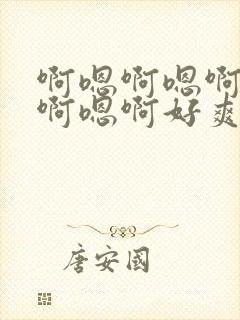 啊嗯啊嗯啊
啊嗯啊好爽
唐安國